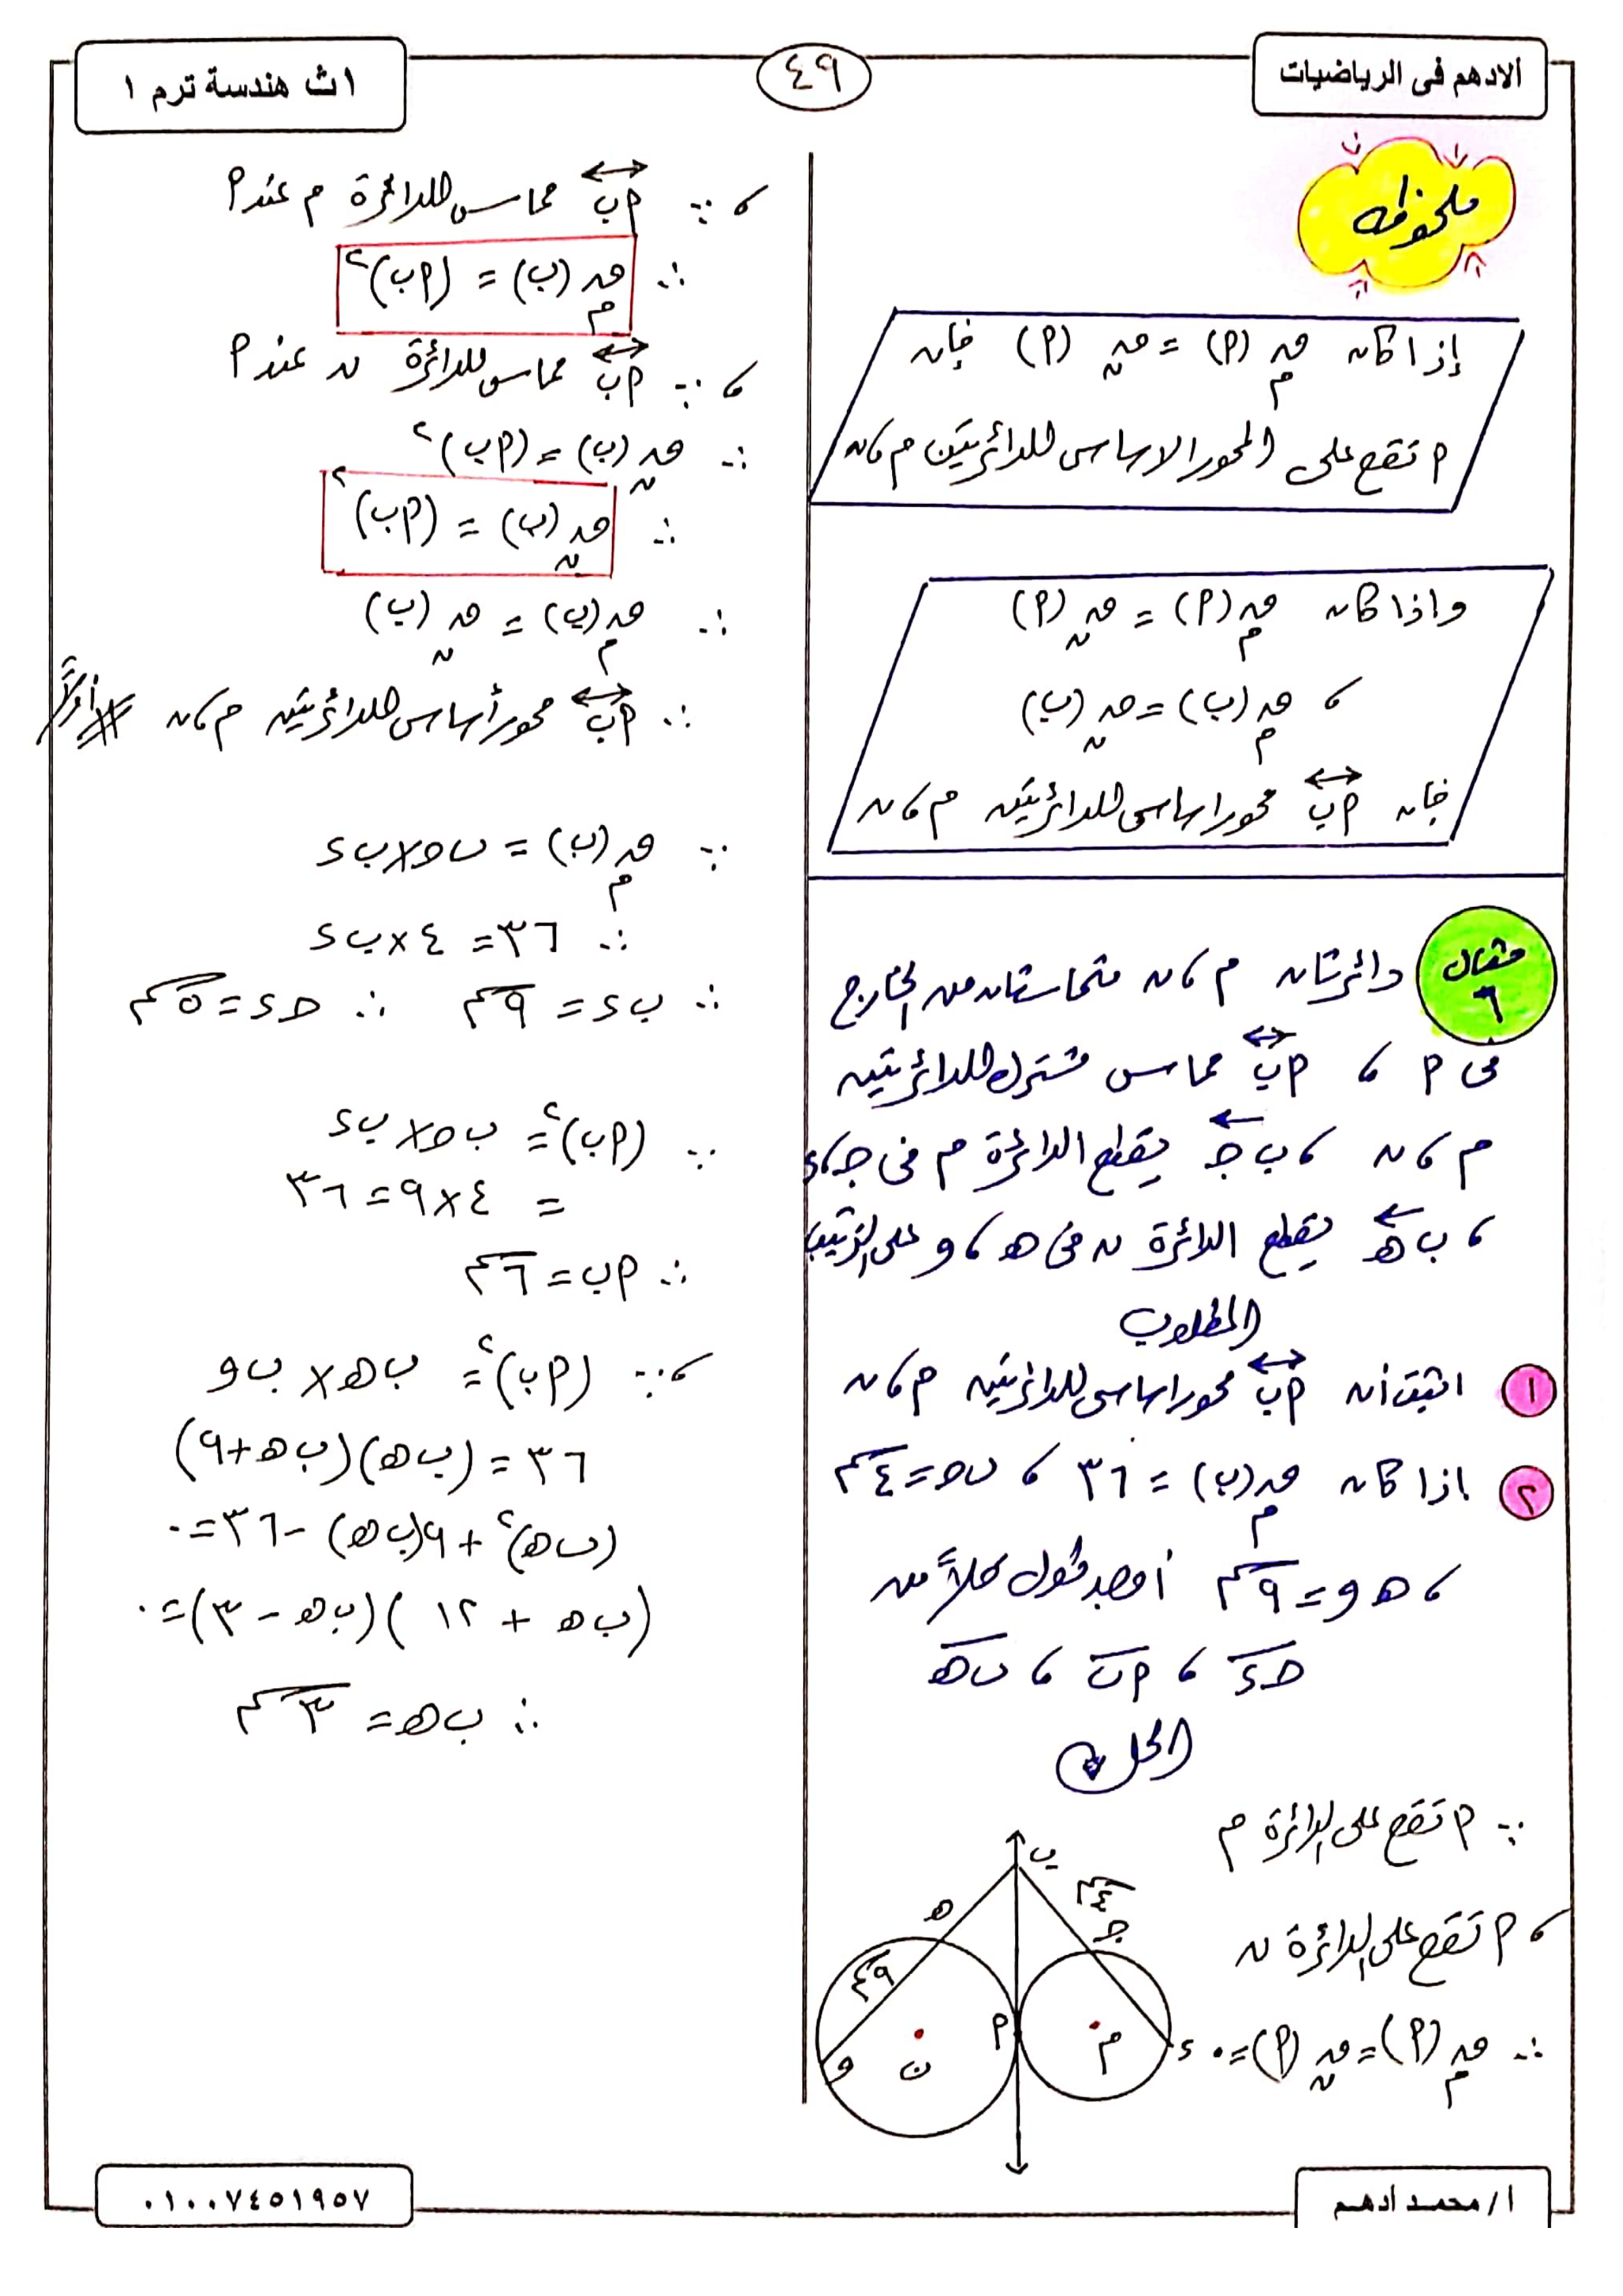 الادهم فى الرياضيات
٤٩
١ث هندسة ترم ١
ملحوظة
إذا كان قم (م) = قن (م) فإن
م تقع على المحور الاساسى للدائرتين م ، ن
واذا كان قم (م) = قن (م)
، قم (ب) = قن (ب)
فإن مب محور اساسى للدائرتين م ، ن
مثال ٦
دائرتان م ، ن متماستان من الخارج
فى م ، مب مماس مشترك للدائرتين
م ، ن ، ب جـ يقطع الدائرة م فى جـ ، ء
، ب هـ يقطع الدائرة ن فى هـ ، و على الترتيب
المطلوب
١ اثبت أن مب محور اساسى للدائرتين م ، ن
٢ إذا كان قم (ب) = ٣٦ ، ب جـ = ٤ سم
، هـ و = ٩ سم أوجد طول كلاً من
جـ ء ، مب ، ب هـ
الحل
∵ م تقع على الدائرة م
، م تقع على الدائرة ن
∴ قم (م) = قن (م) = ٠
ب
٤ سم
جـ
هـ
٩ سم
م
م
ن
و
ء
، ∵ مب مماس للدائرة م عند م
∴ قم (ب) = (مب)٢
، ∵ مب مماس للدائرة ن عند م
∴ قن (ب) = (مب)٢
∴ قن (ب) = (مب)٢
∴ قم (ب) = قن (ب)
∴ مب محور أساسى للدائرتين م ، ن # أولاً
∵ قم (ب) = ب جـ × ب ء
∴ ٣٦ = ٤ × ب ء
∴ ب ء = ٩ سم ∴ جـ ء = ٥ سم
∵ (مب)٢ = ب جـ × ب ء
= ٤ × ٩ = ٣٦
∴ مب = ٦ سم
، ∵ (مب)٢ = ب هـ × ب و
٣٦ = (ب هـ)(ب هـ + ٩)
(ب هـ)٢ + ٩(ب هـ) - ٣٦ = ٠
(ب هـ + ١٢)(ب هـ - ٣) = ٠
∴ ب هـ = ٣ سم
أ/ محمد أدهم
٠١٠٠٧٤٥١٩٥٧